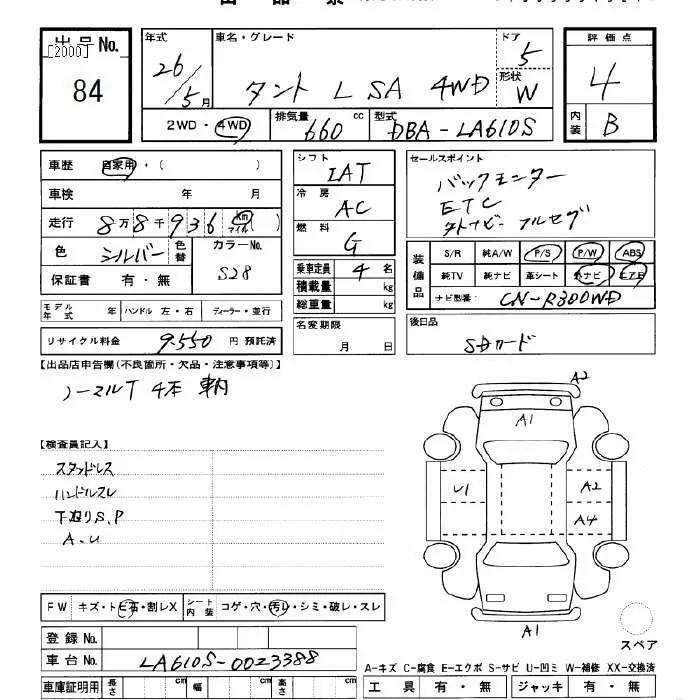 出品No.
[2000]
84
年式 26/5月
車名・グレード タント L SA 4WD
ドア 5
形状 W
評価点 4
内装 B
2WD・4WD
排気量 660 cc
型式 DBA-LA610S
車歴 自家用・( )
車検 年 月
走行 8万8千936 Km マイル
色 シルバー
色替
カラーNo. S28
保証書 有・無
モデル年式 年
ハンドル 左・右
ディーラー・並行
リサイクル料金 9.550 円 預託済
シフト IAT
冷房 AC
燃料 G
乗車定員 4 名
積載量 kg
総重量 kg
名変期限 月 日
セールスポイント
バックモニター
ETC
外ナビ フルセグ
装備品
S/R 純A/W P/S P/W ABS
純TV 純ナビ 革シート 外ナビ エアB
ナビ型番: CN-R300WD
後日品
SDカード
【出品店申告欄(不良箇所・欠品・注意事項等)】
ノーマルT 4本 車内
【検査員記入】
スタッドレス
ハンドルスレ
下廻りS.P
A.U
A2
A1
U1
A2
A4
A1
スペア
FW キズ・トビ石・割レX
シート内装 コゲ・穴・汚レ・シミ・破レ・スレ
登録No.
車台No. LA610S-0023388
A-キズ C-腐食 E-エクボ S-サビ U-凹ミ W-補修 XX-交換済
車庫証明用 長さ cm 幅 cm 高さ cm
工具 有・無 ジャッキ 有・無